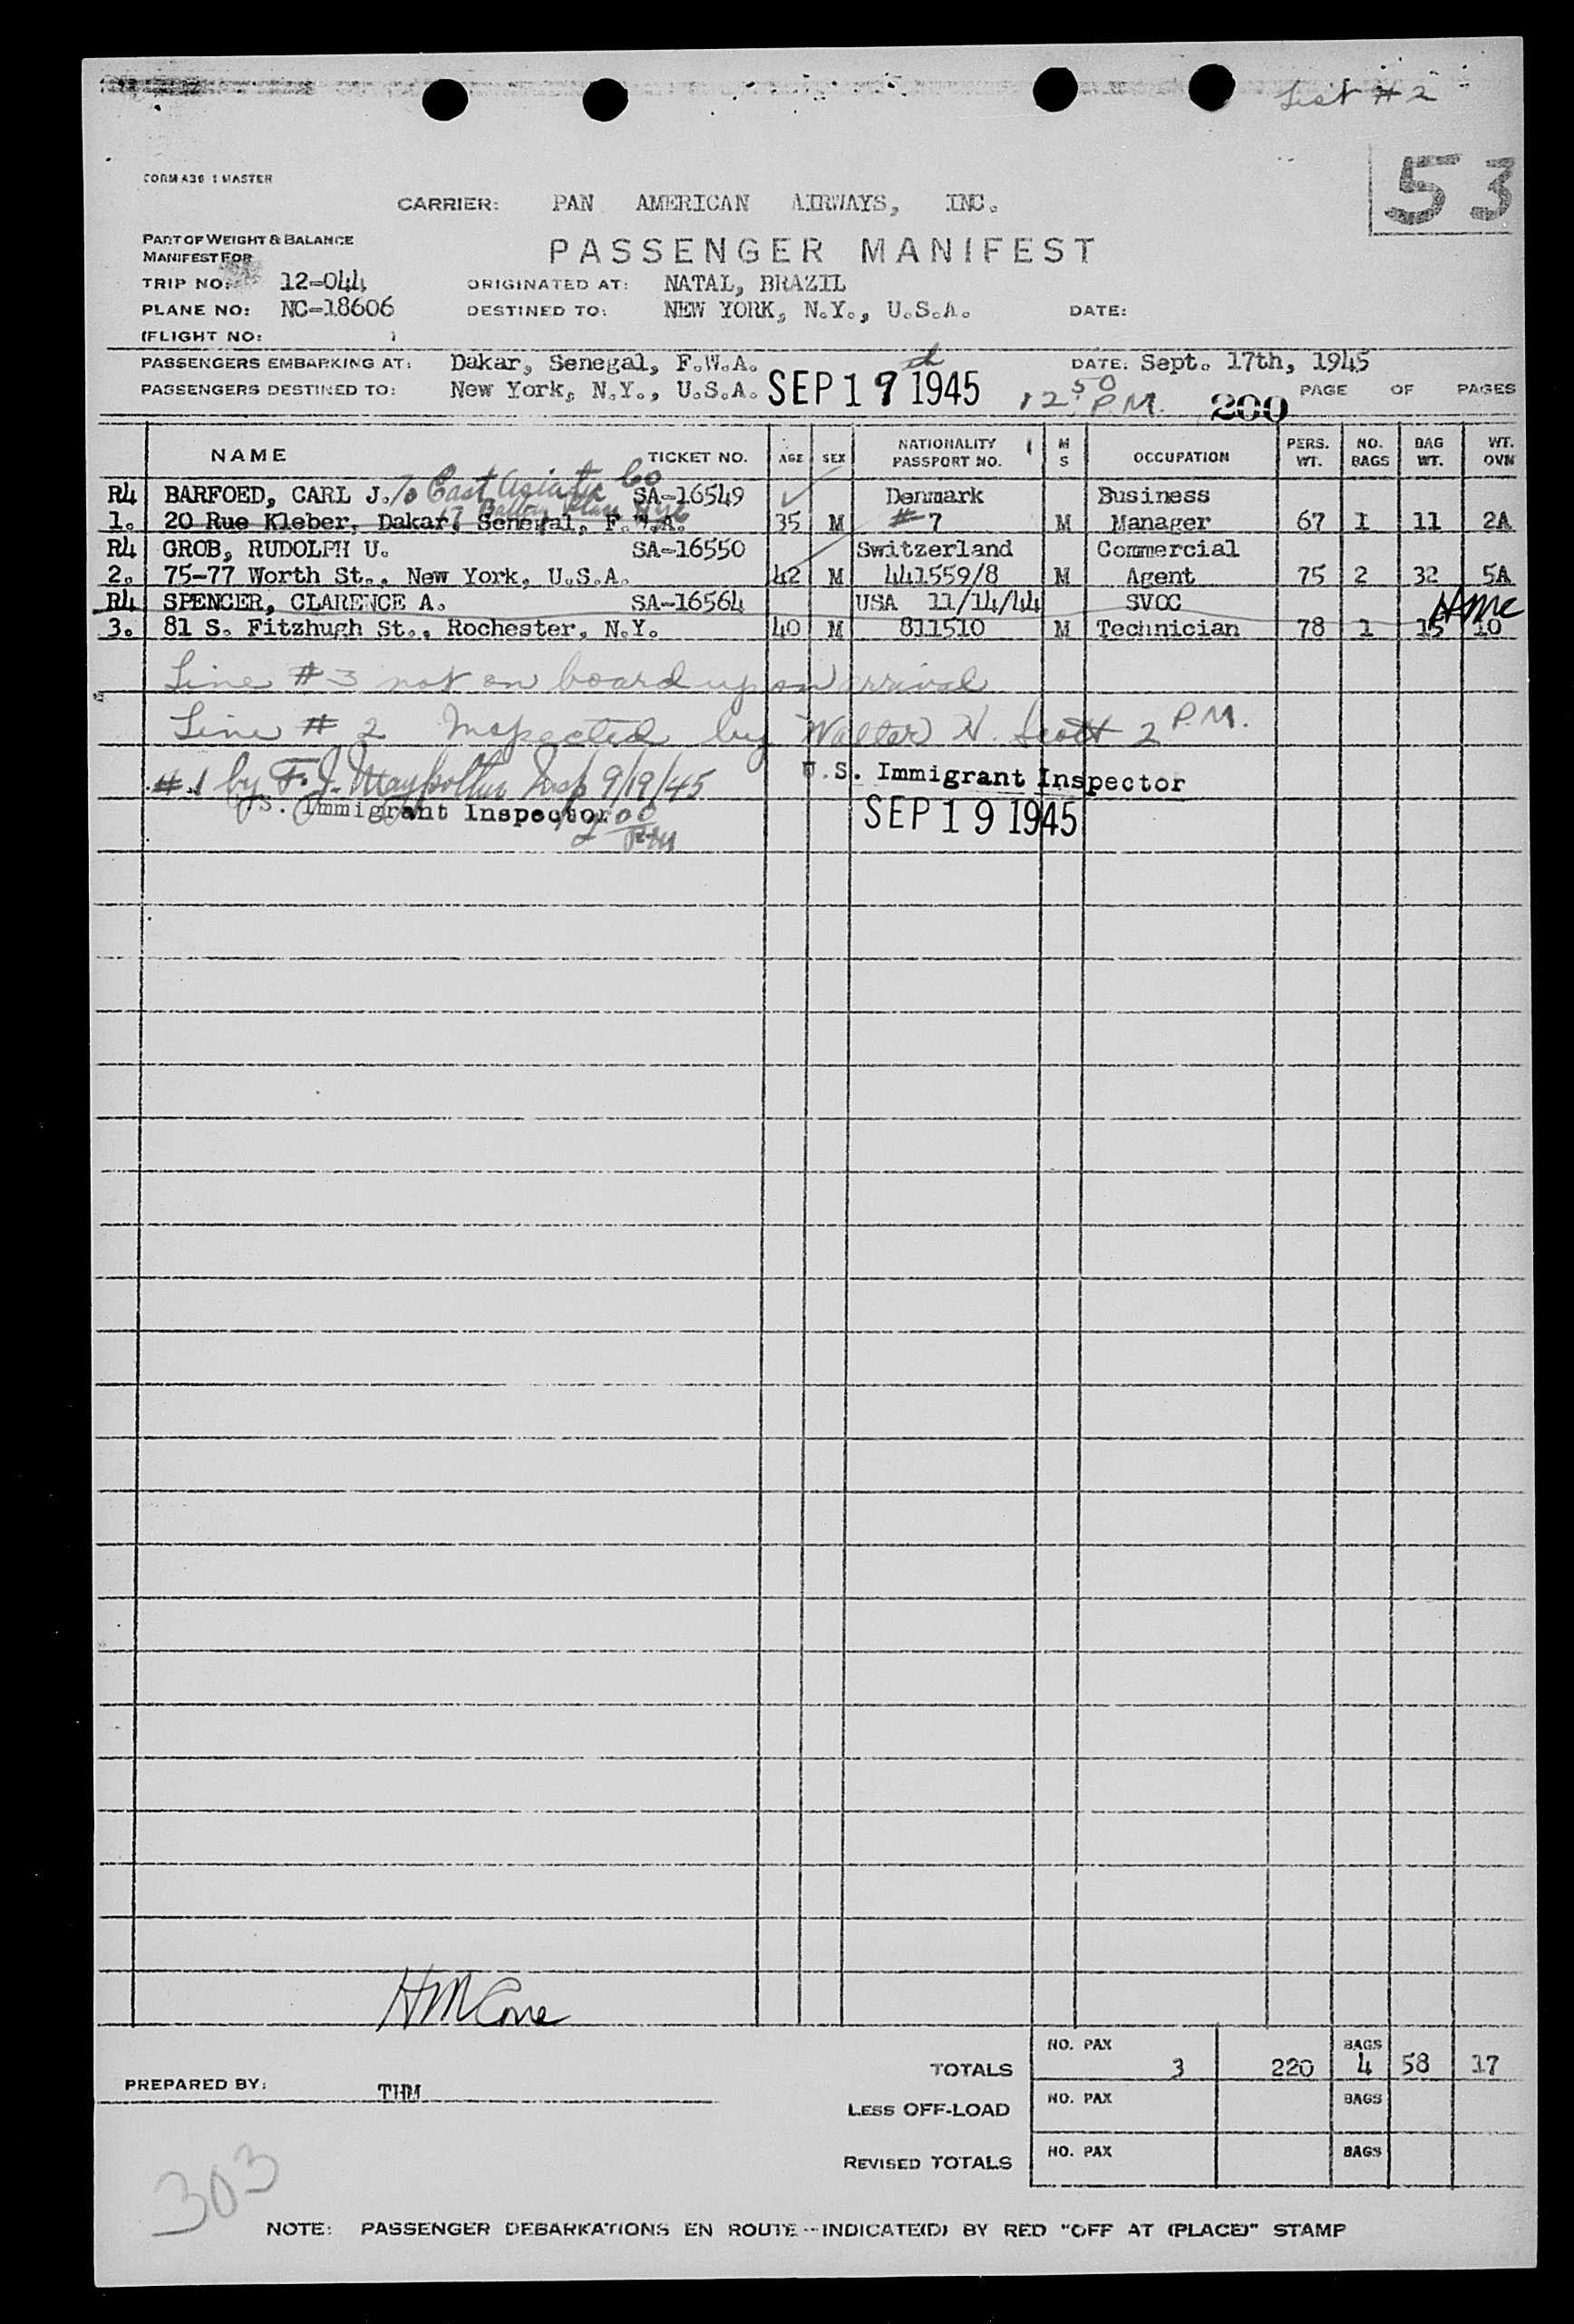 List #2
53
FORM A36-1 MASTER
CARRIER: PAN AMERICAN AIRWAYS, INC.
PART OF WEIGHT & BALANCE
MANIFEST FOR
PASSENGER MANIFEST
TRIP NO: 12-044 ORIGINATED AT: NATAL, BRAZIL
PLANE NO: NC-18606 DESTINED TO: NEW YORK, N.Y., U.S.A. DATE:
(FLIGHT NO: )
PASSENGERS EMBARKING AT: Dakar, Senegal, F.W.A. DATE: Sept. 17th, 1945
PASSENGERS DESTINED TO: New York, N.Y., U.S.A. SEP 19 1945 th 12 50 P.M. 200 PAGE OF PAGES
NAME TICKET NO. AGE SEX NATIONALITY PASSPORT NO. M S OCCUPATION PERS. WT. NO. BAGS BAG WT. WT. OVN
R4 BARFOED, CARL J. % East Asiatic Co SA-16549 Denmark Business
17 Battery Place NYC
1. 20 Rue Kleber, Dakar, Senegal, F.W.A. 35 M #7 M Manager 67 1 11 2A
R4 GROB, RUDOLPH U. SA-16550 Switzerland Commercial
2. 75-77 Worth St., New York, U.S.A. 42 M 441559/8 M Agent 75 2 32 5A
R4 SPENCER, CLARENCE A. SA-16564 USA 11/14/44 SVOC HMC
3. 81 S. Fitzhugh St., Rochester, N.Y. 40 M 811510 M Technician 78 1 15 10
Line #3 not on board upon arrival
Line #2 Inspected by Walter H. Scott 2 P.M.
U.S. Immigrant Inspector
#1 by F. J. Insp 9/19/45
U.S. Immigrant Inspector
2 00 PM
SEP 19 1945
HMCone
TOTALS NO. PAX 3 220 BAGS 4 58 17
PREPARED BY: THM
LESS OFF-LOAD NO. PAX BAGS
REVISED TOTALS NO. PAX BAGS
303
NOTE: PASSENGER DEBARKATIONS EN ROUTE--INDICATE(D) BY RED "OFF AT (PLACE)" STAMP